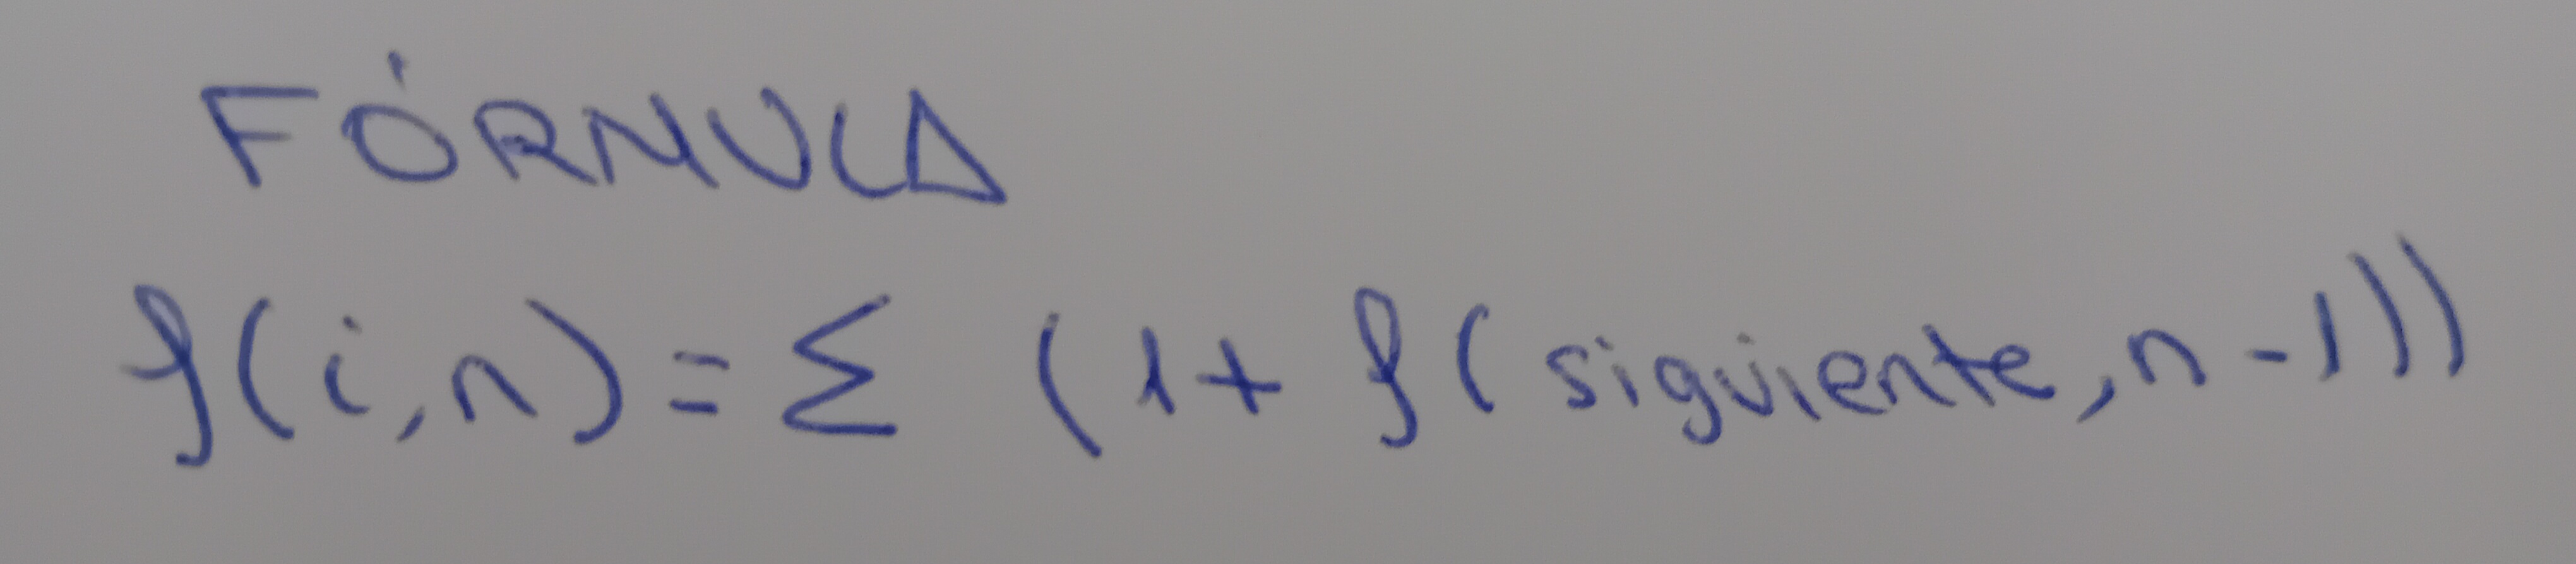 FÓRMULA
f(i,n) = Σ (1 + f(siguiente, n-1))